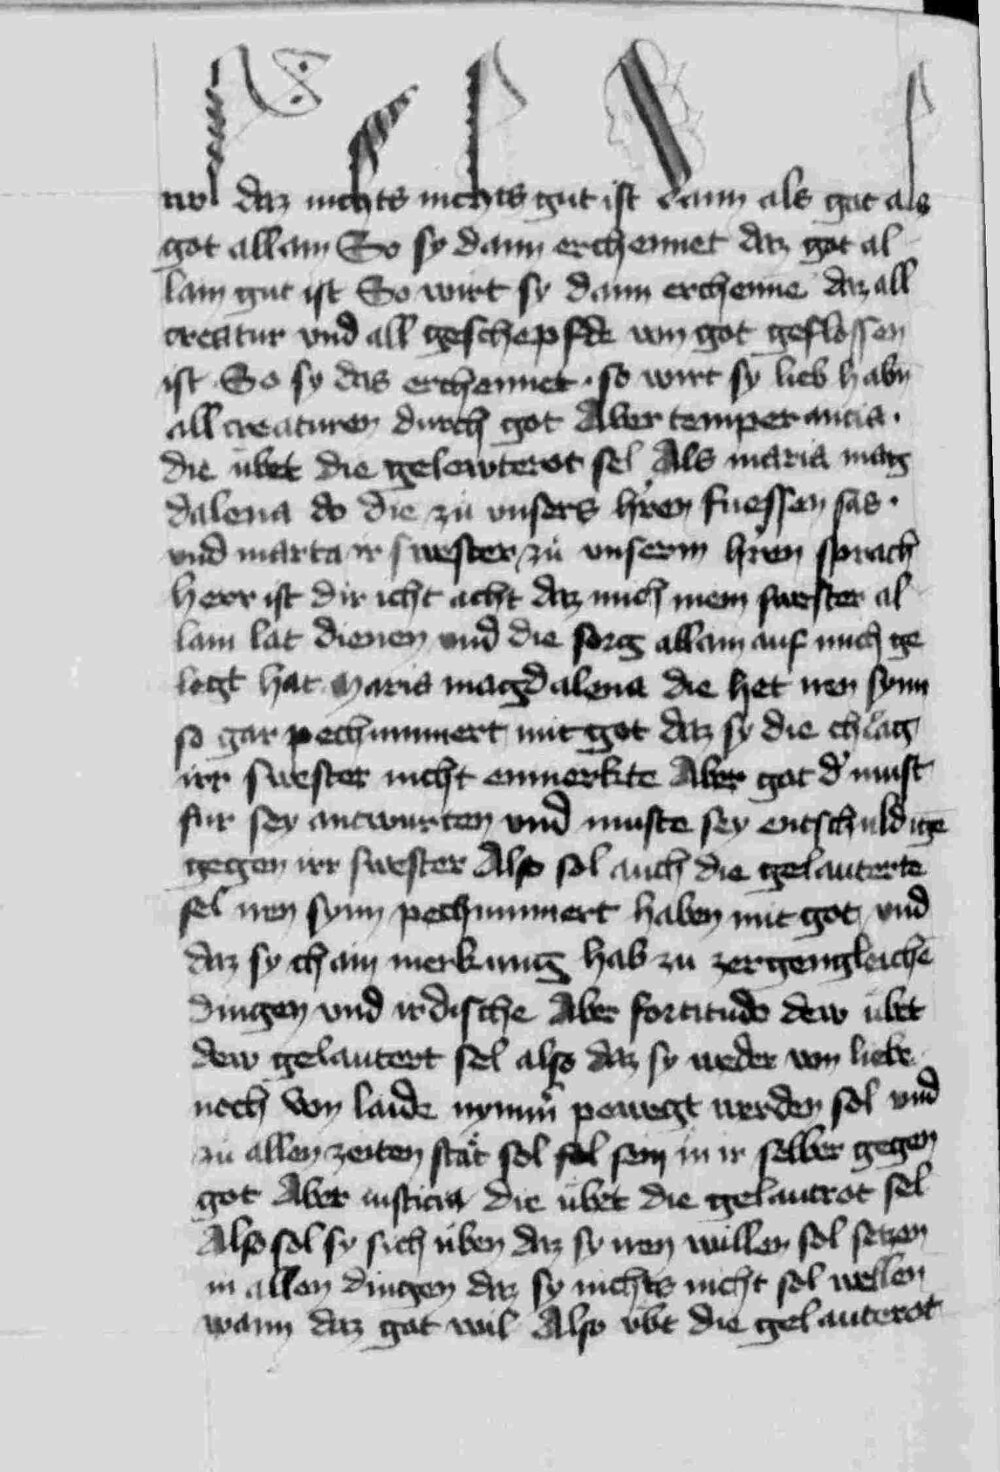 wol daz nichts nichts gut ist dann als gut als
got allain So sy dann erchennet daz got al
lain gut ist So wirt sy dann erchenne daz all
creatur vnd all geschepfde von got geflossen
ist · So sy das erchennet · so wirt sy lieb habn
all creaturen durch got Aber temperancia ·
die übet die gelewterot sel Als maria mag
dalena do die zu vnsers hren fuessen sas ·
vnd marta ir swester zu vnserm hren sprach
herr ist dir icht acht daz mich mein swester al
lain lat dienen vnd die sorg allain auf mich ge
legt hat Maria magdalena die het iren synn
so gar pechummert mit got daz sy die chlag
irr swester nicht enmerkte Aber got d' must
fur sey antwurten vnd muste sey entschuldigē
gegen irr swester Also sol auch die gelauterte
sel iren synn pechummert haben mit got vnd
daz sy chain merkung hab zu zergengleichē
dingen vnd irdische Aber fortitudo dew übet
dew gelautert sel also daz sy weder von liebe
noch von laide nymm' pewegt werden sol vnd
zu allen zeiten stät sol sein in ir selber gegen
got Aber iusticia die übet die gelautrot sel
Also sol sy sich üben daz sy iren willen sol setzen
in allen dingen daz sy nichts nicht sol wellen
wann daz got wil Also vbt die gelauterot